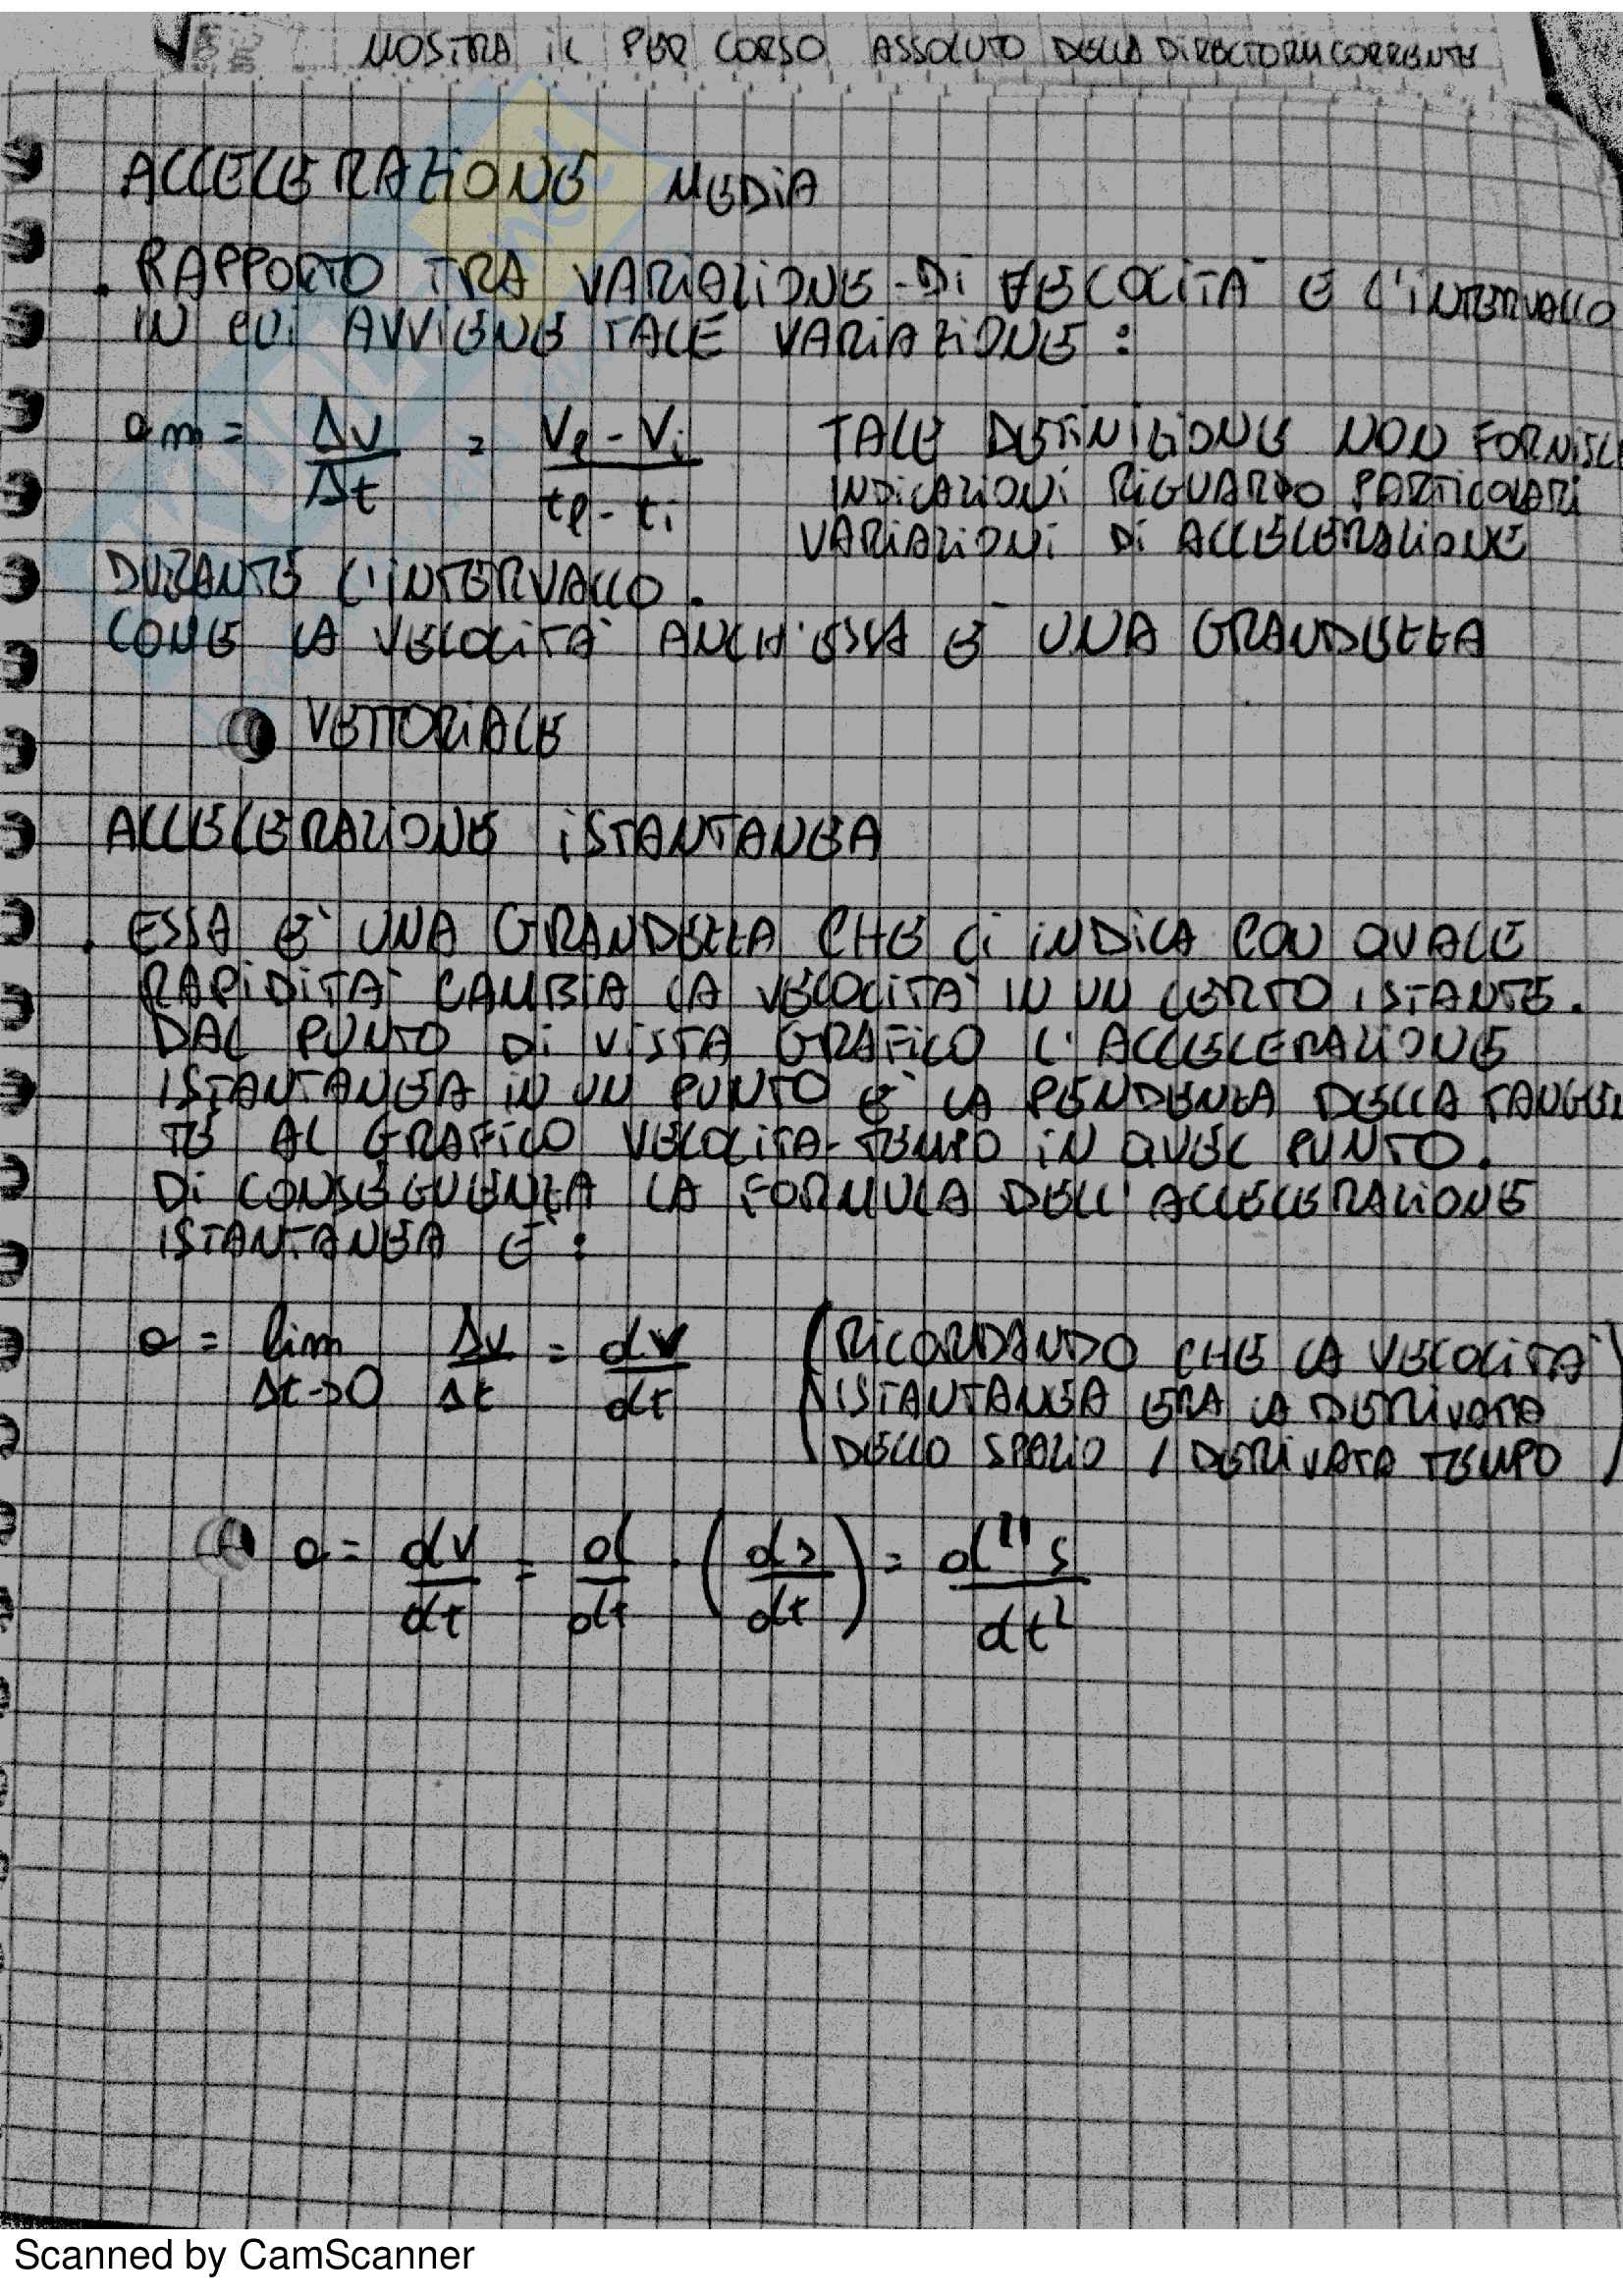 MOSTRA IL PERCORSO ASSOLUTO DELLA DIRECTORY CORRENTE
ACCELERAZIONE MEDIA
. RAPPORTO TRA VARIAZIONE DI VELOCITÀ E L'INTERVALLO
IN CUI AVVIENE TALE VARIAZIONE :
am = Δv/Δt = (Vf - Vi)/(tf - ti) TALE DEFINIZIONE NON FORNISCE
INDICAZIONI RIGUARDO PARTICOLARI
VARIAZIONI DI ACCELERAZIONE
DURANTE L'INTERVALLO .
COME LA VELOCITÀ ANCH'ESSA È UNA GRANDEZZA
VETTORIALE
ACCELERAZIONE ISTANTANEA
. ESSA È UNA GRANDEZZA CHE CI INDICA CON QUALE
RAPIDITÀ CAMBIA LA VELOCITÀ IN UN CERTO ISTANTE.
DAL PUNTO DI VISTA GRAFICO L'ACCELERAZIONE
ISTANTANEA IN UN PUNTO È LA PENDENZA DELLA TANGEN
TE AL GRAFICO VELOCITA-TEMPO IN QUEL PUNTO.
DI CONSEGUENZA LA FORMULA DELL'ACCELERAZIONE
ISTANTANEA È :
a = lim Δt→0 Δv/Δt = dv/dt (RICORDANDO CHE LA VELOCITÀ
ISTANTANEA ERA LA DERIVATA
DELLO SPAZIO / DERIVATA TEMPO)
a = dv/dt = d/dt · (ds/dt) = d''s/dt²
Scanned by CamScanner